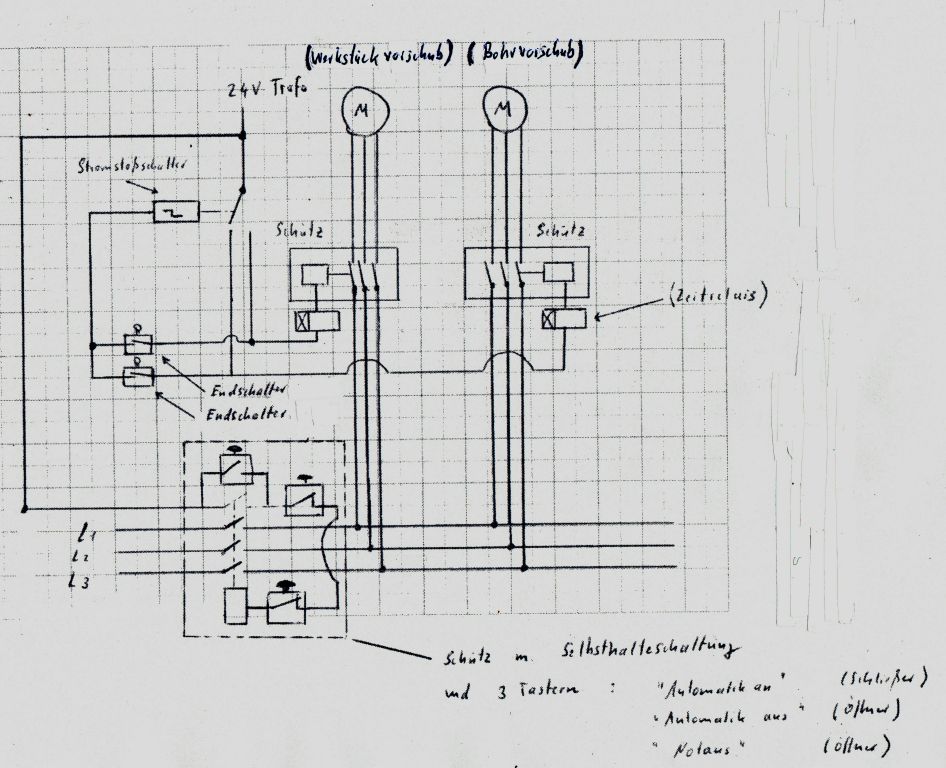 (Werkstückvorschub) (Bohrvorschub)
24V Trafo
M M
Stromstoßschalter
Schütz Schütz
(Zeitrelais)
Endschalter
Endschalter
L1
L2
L3
Schütz m. Selbsthalteschaltung
und 3 Tastern : "Automatik an" (Schließer)
"Automatik aus" (Öffner)
"Notaus" (Öffner)